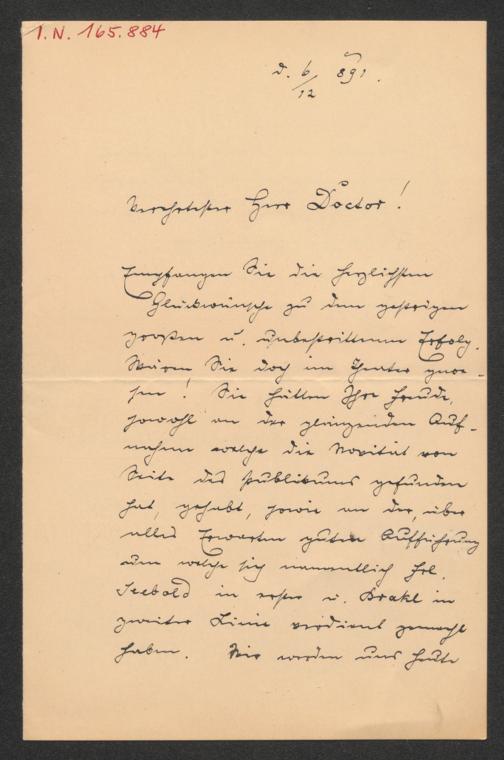 I.N. 165.884
d. 6/12 891.
Verehrtester Herr Doctor!
Empfangen Sie die herzlichsten
Glückwünsche zu dem gestrigen
großen u. unbestrittenen Erfolg.
Wären Sie doch im Theater gewe-
sen! Sie hätten Ihre Freude,
sowohl an der glänzenden Auf-
nahme welche die Novität von
Seite des Publikums gefunden
hat, gehabt, sowie an der, über
alles Erwarten guten Aufführung
um welche sich namentlich Frl.
Seebold in erster u. Brakl in
zweiter Linie verdient gemacht
haben. Wir werden uns heute